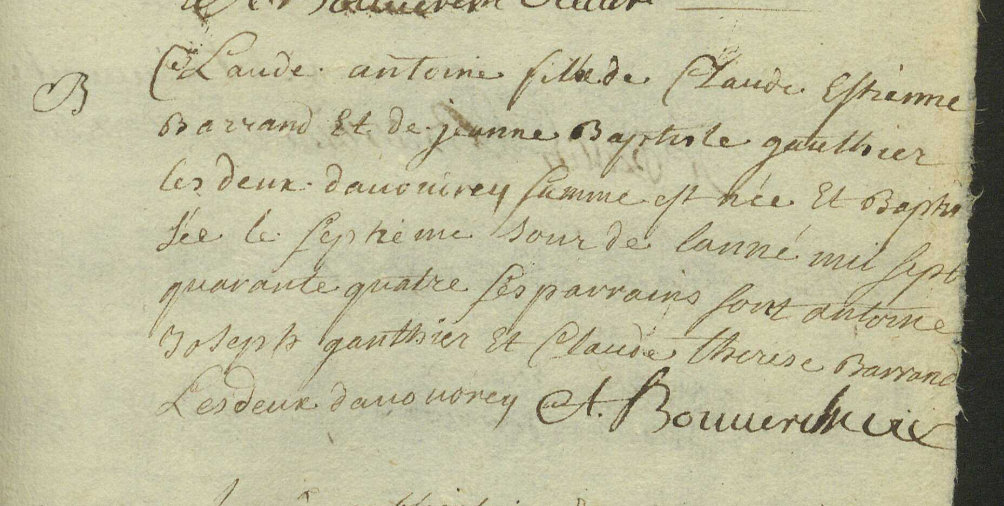 Bouveret
B
Claude antoine fille de Claude Estienne
Barrand Et de jeanne Baptiste gauthier
les deux davouvrey femme est née Et Bapti
sée le septieme Jour de lanné mil sept
quarante quatre ses parrains sont antoine
Joseph gauthier Et Claude therese Barrand
Les deux davouvrey A. Bouveret